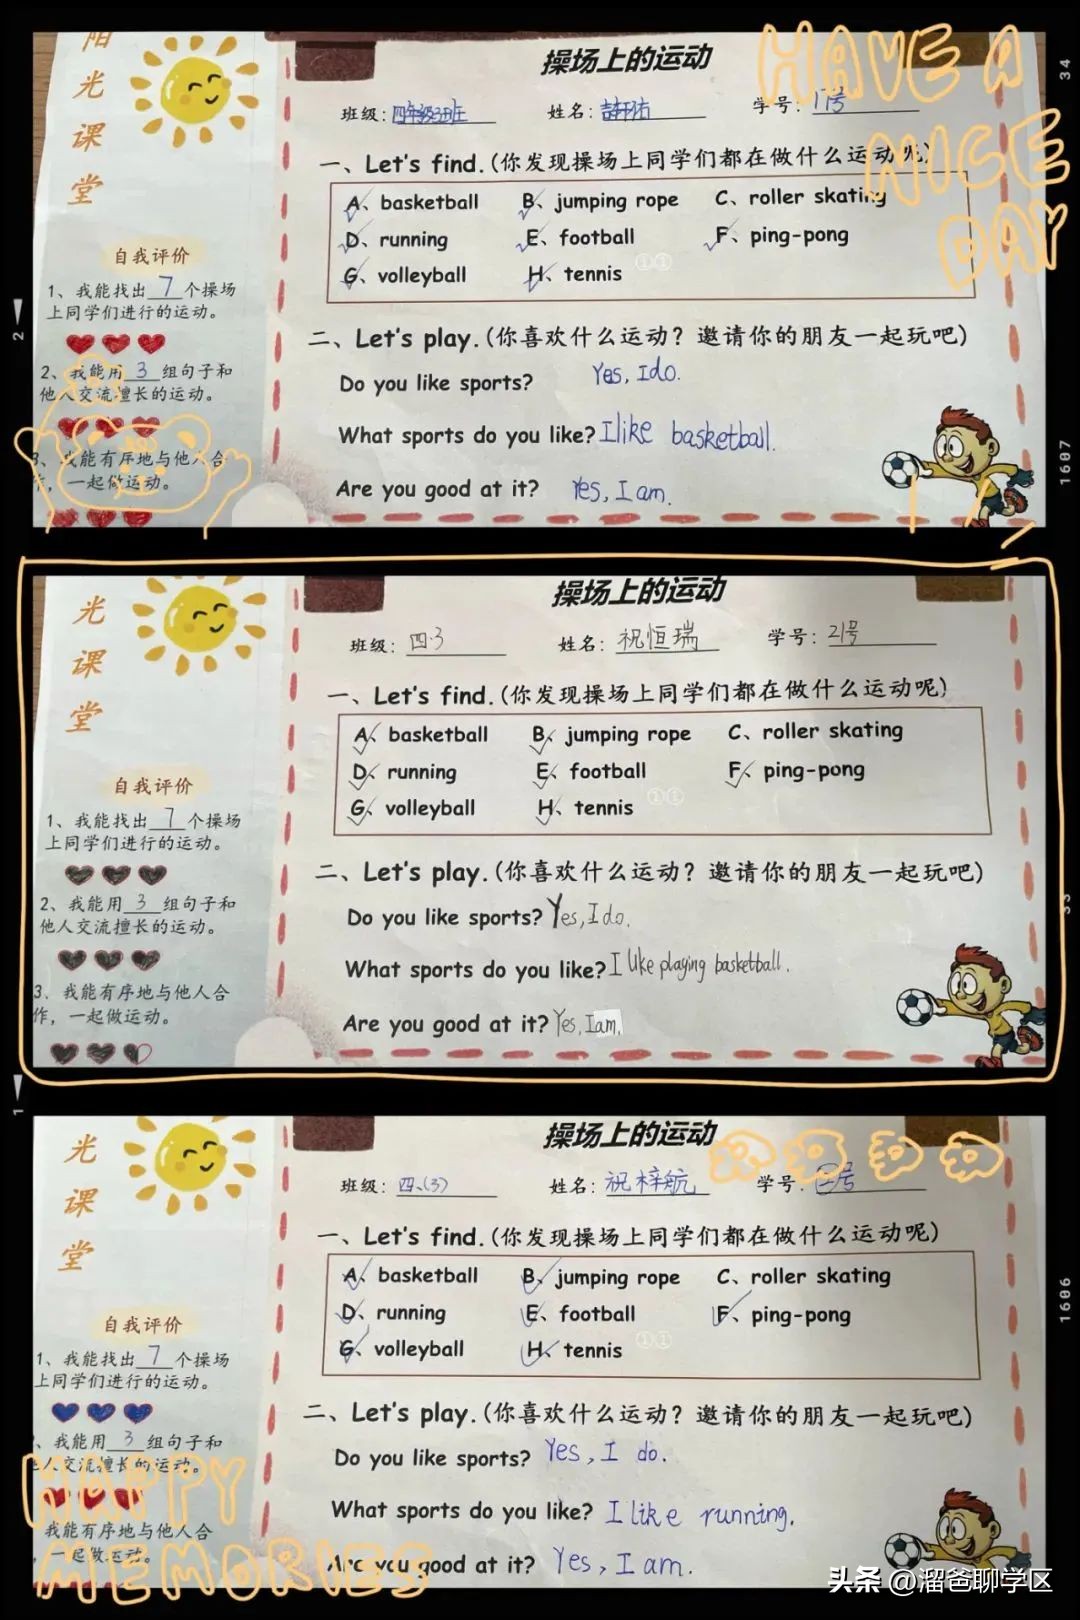 阳光课堂
HAVE A NICE DAY
34
操场上的运动
班级:四年级3班 姓名: 学号:11号
一、Let's find.(你发现操场上同学们都在做什么运动呢)
A、basketball B、jumping rope C、roller skating
D、running E、football F、ping-pong
G、volleyball H、tennis
自我评价
1、我能找出7个操场
上同学们进行的运动。
2、我能用3组句子和
他人交流擅长的运动。
3、我能有序地与他人合
作，一起做运动。
二、Let's play.(你喜欢什么运动？邀请你的朋友一起玩吧)
Do you like sports? Yes, I do.
What sports do you like? I like basketball.
Are you good at it? Yes, I am.
2
1607
光课堂
操场上的运动
班级:四.3 姓名:祝恒瑞 学号:21号
一、Let's find.(你发现操场上同学们都在做什么运动呢)
A、basketball B、jumping rope C、roller skating
D、running E、football F、ping-pong
G、volleyball H、tennis
自我评价
1、我能找出7个操场
上同学们进行的运动。
2、我能用3组句子和
他人交流擅长的运动。
3、我能有序地与他人合
作，一起做运动。
二、Let's play.(你喜欢什么运动？邀请你的朋友一起玩吧)
Do you like sports? Yes, I do.
What sports do you like? I like playing basketball.
Are you good at it? Yes, I am.
33
1
光课堂
操场上的运动
班级:四、(3) 姓名:祝梓航 学号:号
一、Let's find.(你发现操场上同学们都在做什么运动呢)
A、basketball B、jumping rope C、roller skating
D、running E、football F、ping-pong
G、volleyball H、tennis
自我评价
1、我能找出7个操场
上同学们进行的运动。
、我能用3组句子和
他人交流擅长的运动。
我能有序地与他人合
，一起做运动。
二、Let's play.(你喜欢什么运动？邀请你的朋友一起玩吧)
Do you like sports? Yes, I do.
What sports do you like? I like running.
Are you good at it? Yes, I am.
1606
HAPPY MEMORIES
头条 @溜爸聊学区